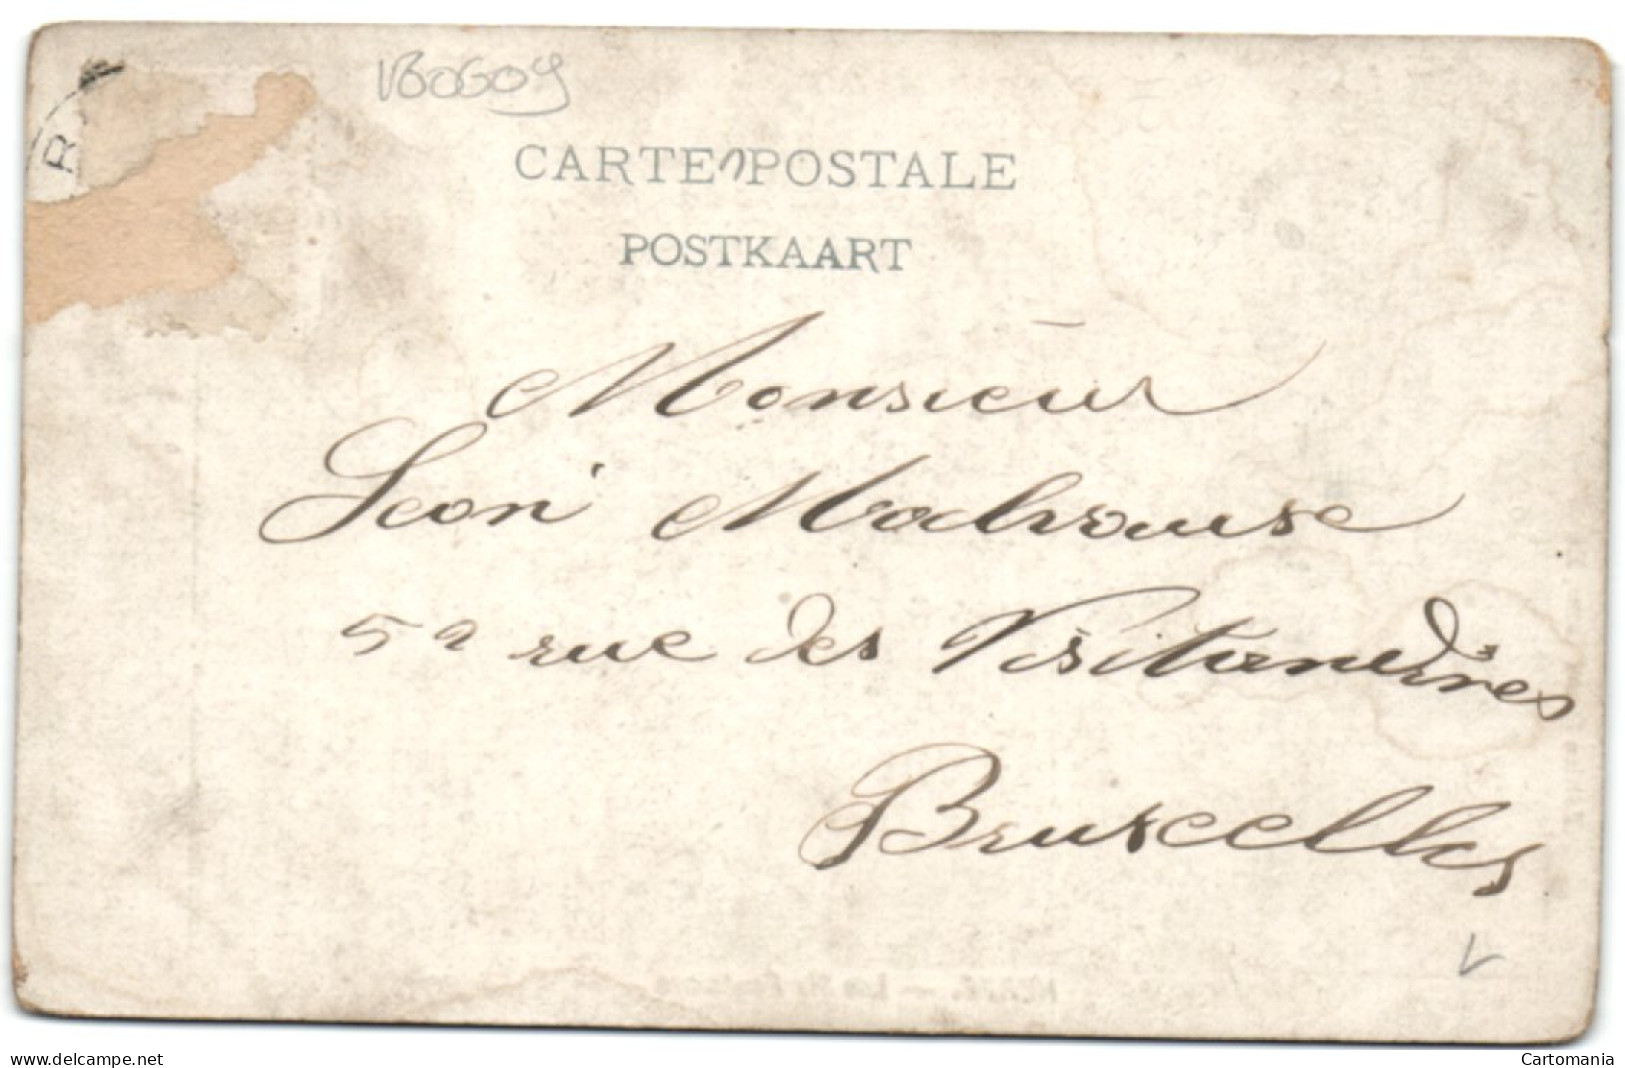 R
CARTE POSTALE
POSTKAART
Monsieur
Leon Mochouse
52 rue des Visitandines
Bruxelles
www.delcampe.net
Cartomania